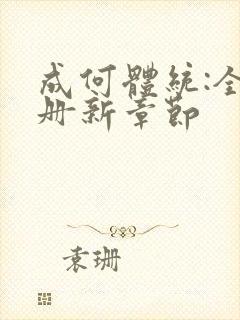 成何體統:全
册新章節
袁珊